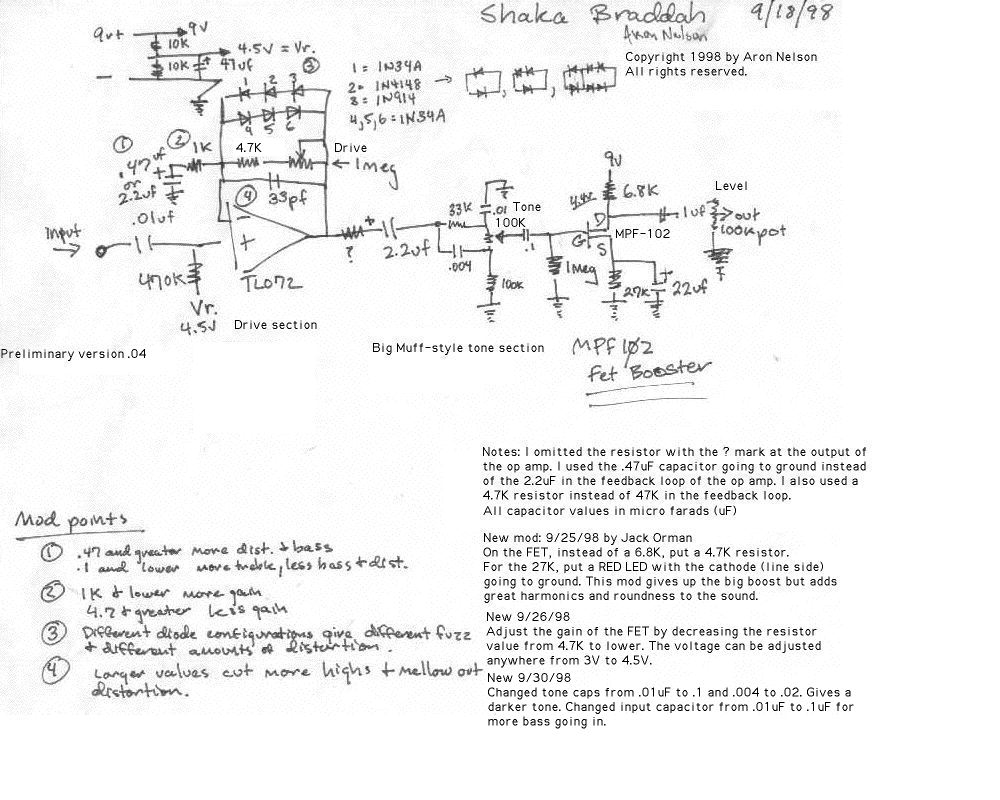 Shaka Braddah 9/18/98
Aron Nelson
Copyright 1998 by Aron Nelson
All rights reserved.
9v+ 9V
10K
10K 47uf 4.5V = Vr.
1 2 3 ③
4 5 6
1 = 1N34A
2 = 1N4148
3 = 1N914
4,5,6 = 1N34A
① ② 1K 4.7K Drive
.47uf
or
2.2uf
1meg
33pf
④
.01uf
Input
470K
Vr.
4.5V
TL072
Drive section
?
2.2uf
33K
.01 Tone
100K
.004
100k
.1
1meg
9v
4.4v 6.8K
D
G
S
MPF-102
27K 22uf
1uf
Level
out
100k pot
Preliminary version .04
Big Muff-style tone section
MPF102
Fet Booster
Notes: I omitted the resistor with the ? mark at the output of
the op amp. I used the .47uF capacitor going to ground instead
of the 2.2uF in the feedback loop of the op amp. I also used a
4.7K resistor instead of 47K in the feedback loop.
All capacitor values in micro farads (uF)
New mod: 9/25/98 by Jack Orman
On the FET, instead of a 6.8K, put a 4.7K resistor.
For the 27K, put a RED LED with the cathode (line side)
going to ground. This mod gives up the big boost but adds
great harmonics and roundness to the sound.
New 9/26/98
Adjust the gain of the FET by decreasing the resistor
value from 4.7K to lower. The voltage can be adjusted
anywhere from 3V to 4.5V.
New 9/30/98
Changed tone caps from .01uF to .1 and .004 to .02. Gives a
darker tone. Changed input capacitor from .01uF to .1uF for
more bass going in.
Mod points
① .47 and greater more dist. + bass
.1 and lower more treble, less bass + dist.
② 1K + lower more gain
4.7 + greater less gain
③ Different diode configurations give different fuzz
+ different amounts of distortion.
④ Larger values cut more highs + mellow out
distortion.